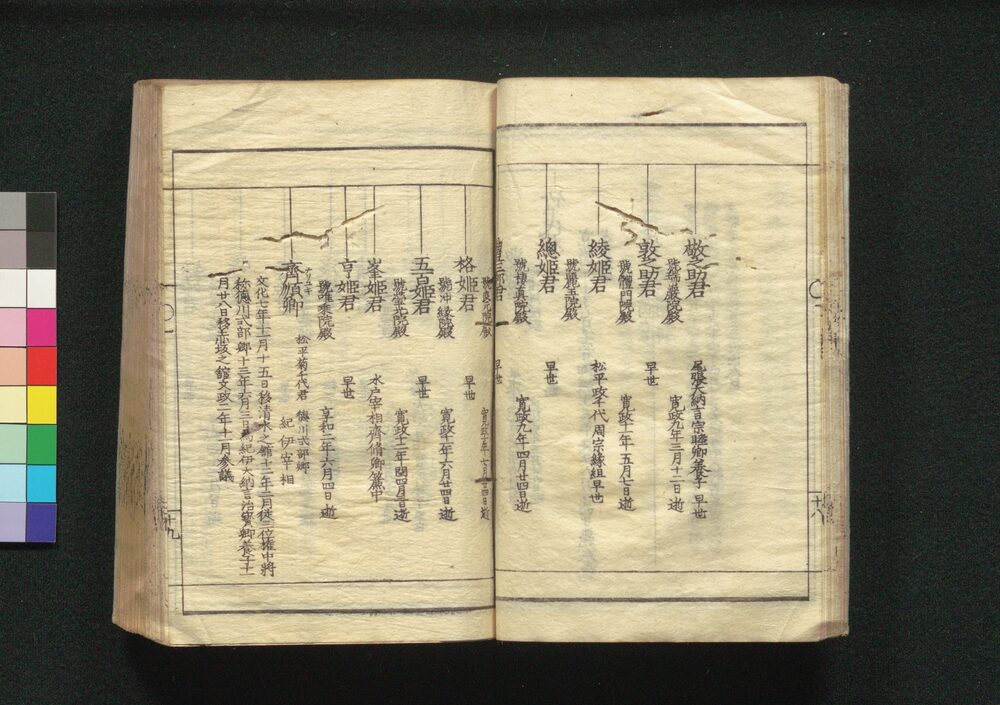 敬之助君
尾張大納言宗睦卿養子 早世
號瑞嚴院殿
寛政九年三月十二日逝
敦之助君
早世
號體門院殿
寛政十一年五月七日逝
綾姫君
松平政千代周宗縁組早世
號麗玉院殿
總姫君
早世
號棲真院殿
寛政九年四月廿四日逝
十八
早世
格姫君
早世
號冲縁院殿
寛政十一年六月廿四日逝
五百姫君
早世
號瑩光院殿
寛政十二年閏四月 逝
峯姫君
水戸宰相齊脩卿簾中
亨姫君
早世
號唯乘院殿
享和二年六月四日逝
齊順卿
松平菊千代君
徳川式部卿
紀伊宰相
文化七年十一月十五日移清水之舘十二年二月従三位権中將
称徳川式部卿十三年六月三日為紀伊大納言治寶卿養子十一
月廿八日移赤坂之舘文政二年十一月参議
十九